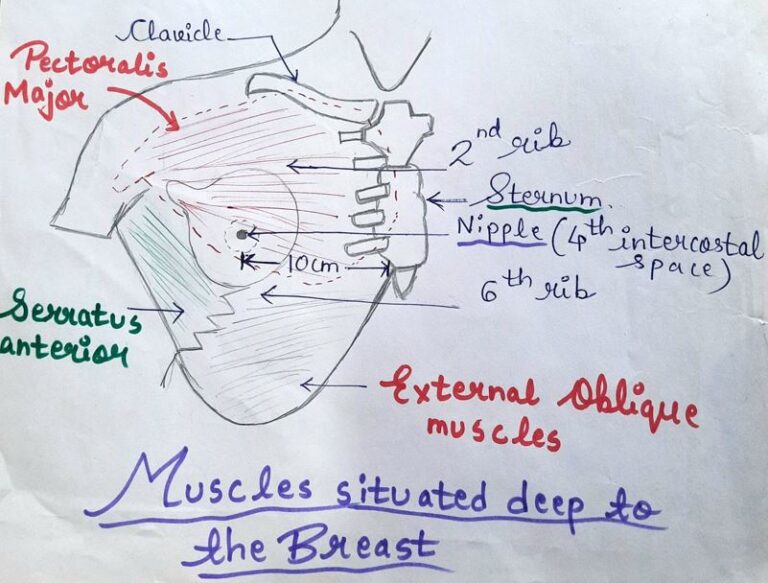 Clavicle
Pectoralis
Major
2nd rib
Sternum.
Nipple (4th intercostal
space)
10cm
6th rib
Serratus
anterior
External Oblique
muscles
Muscles situated deep to
the Breast